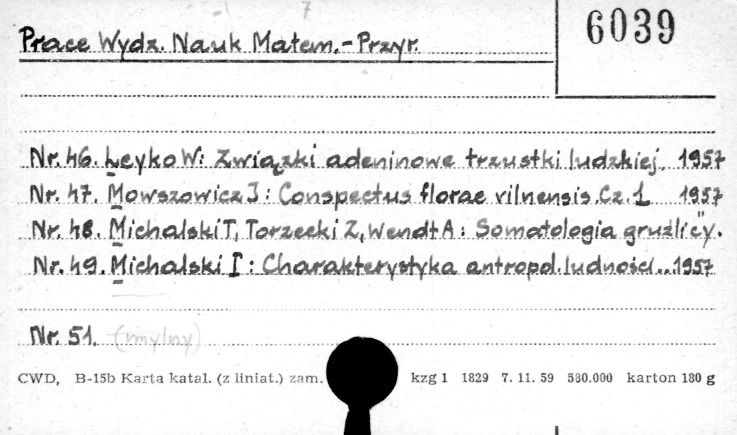 7
6039
Prace Wydz. Nauk Matem.-Przyr.
Nr. 46. Leyko W: Związki adeninowe trzustki ludzkiej. 1957
Nr. 47. Mowszowicz J: Conspectus florae vilnensis. Cz. 1 1957
Nr. 48. Michalski T, Torzecki Z, Wendt A: Somatologia gruźlicy. "
Nr. 49. Michalski I: Charakterystyka antropol. ludności... 1957
Nr. 51. (mylny)
CWD, B-15b Karta katal. (z liniat.) zam. kzg 1 1829 7. 11. 59 580.000 karton 180 g